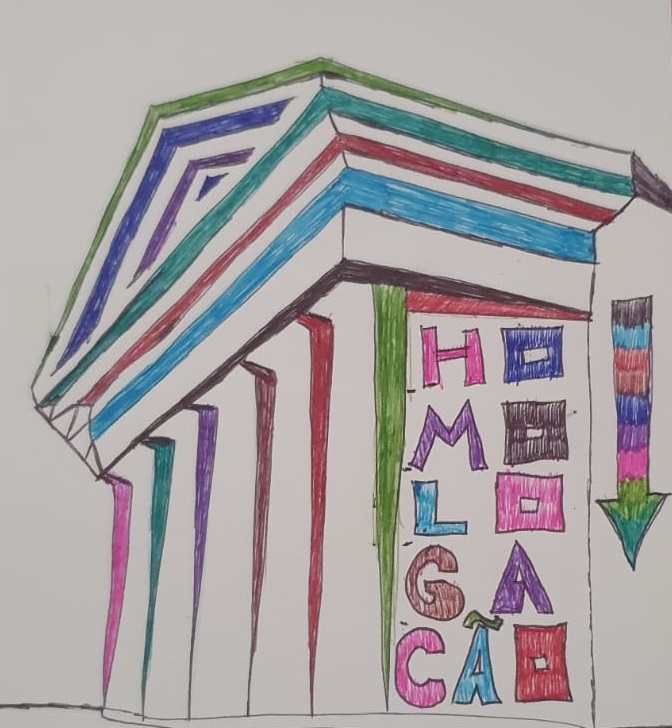 HO
MO
LO
GA
CÃO